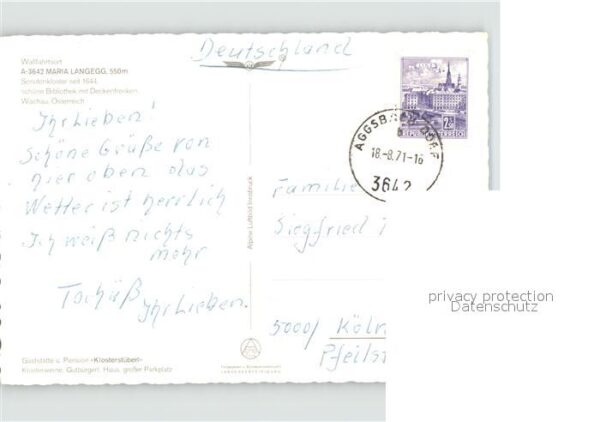 Wallfahrtsort
A-3642 MARIA LANGEGG, 550m
Servitenkloster seit 1644,
schöne Bibliothek mit Deckenfresken
Wachau, Österreich
Deutschland
Ihr Lieben!
Schöne Grüße von
hier oben das
Wetter ist herrlich
Ich weiß nichts
mehr
Tschüß
Ihr Lieben.
Gaststätte u. Pension »Klosterstüberl«
Klosterweine, Gutbürgerl. Haus, großer Parkplatz
Alpine Luftbild Innsbruck
REPUBLIK ÖSTERREICH
AGGSBACH-DORF
18.-8.71-16
3642
Familie
Siegfried
5000/ Köln
Pfeilst
privacy protection
Datenschutz